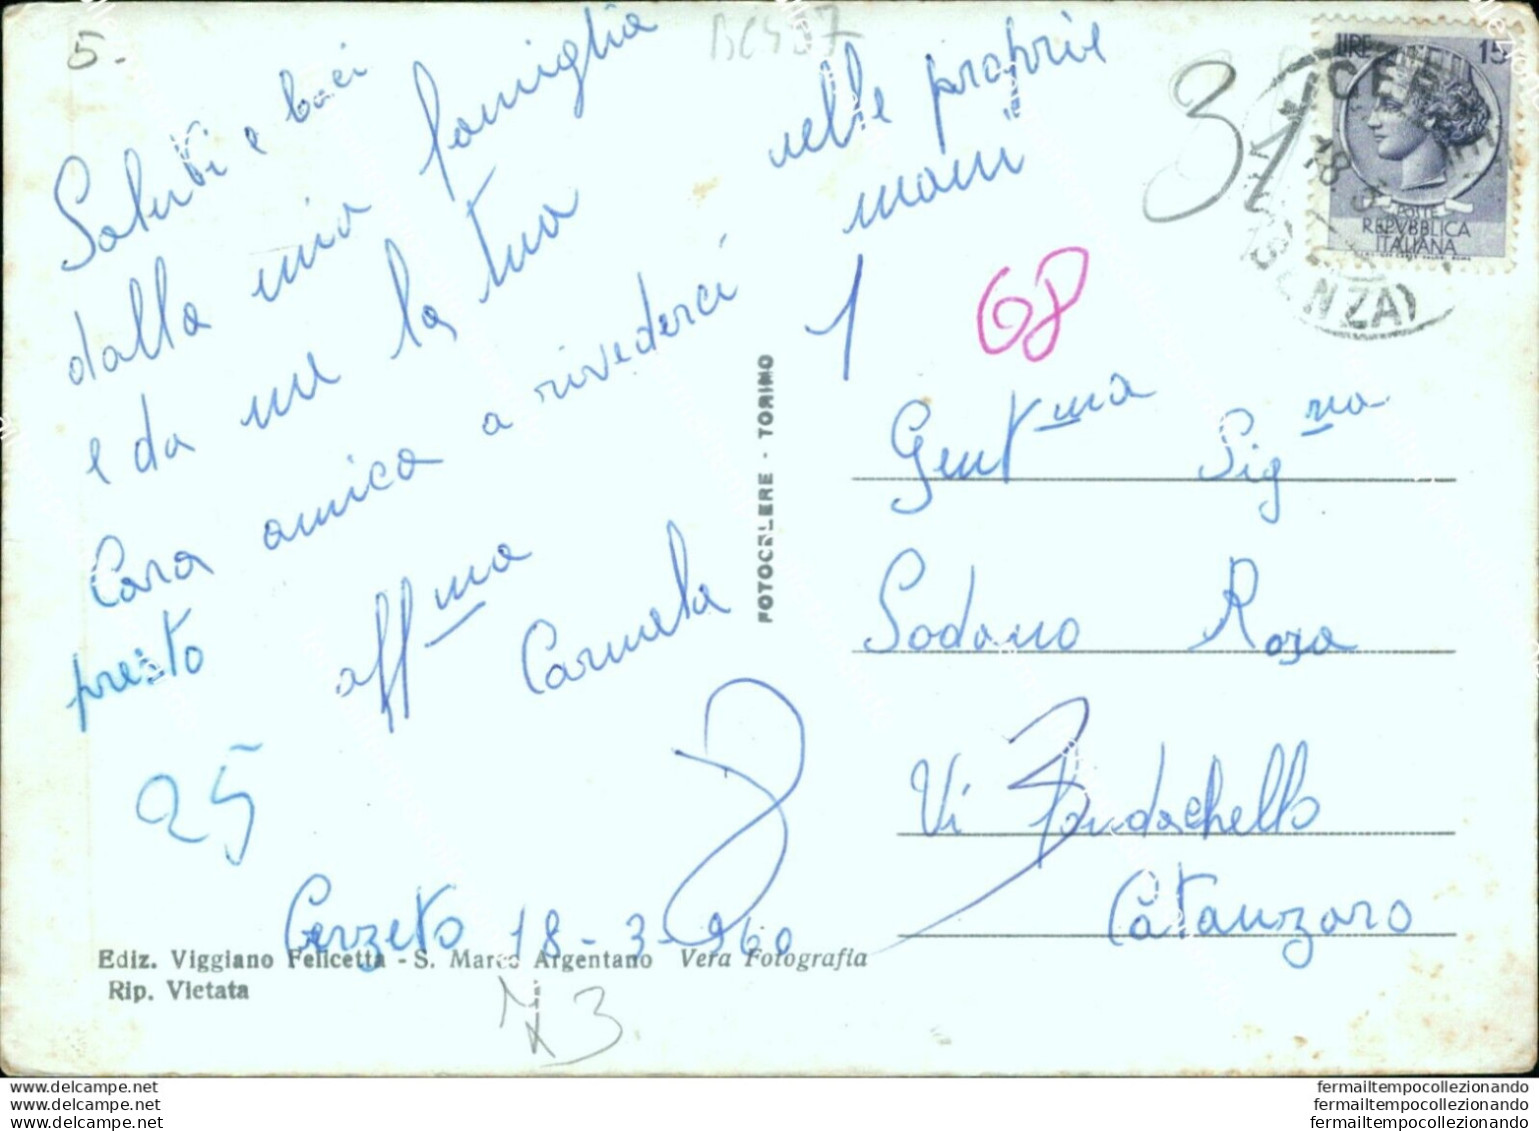 5.
BC457
Saluti e baci
dalla mia famiglia
e da me la tua
Cara amica a rivederci
presto
aff ma
Carmela
25
Cerzeto 18-3-960
Ediz. Viggiano Felicetta - S. Marco Argentano Vera Fotografia
Rip. Vietata
3
FOTOCELERE - TORINO
nelle proprie
mani
31
68
LIRE 15
POSTE
REPVBBLICA
ITALIANA
CER
18 3
ENZA)
Gent ma Sig na
Sodano Rosa
Vi Fondachello
Catanzaro
www.delcampe.net
www.delcampe.net
www.delcampe.net
fermailtempocollezionando
fermailtempocollezionando
fermailtempocollezionando